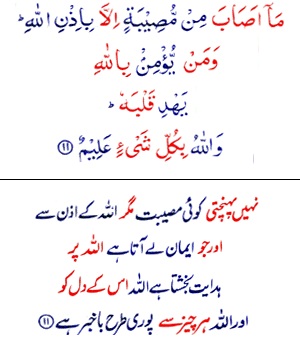 مَاۤ اَصَابَ مِنْ مُّصِیْبَةٍ اِلَّا بِاِذْنِ اللّٰهِ ؕ
وَمَنْ یُّؤْمِنْۢ بِاللّٰهِ
یَهْدِ قَلْبَهٗ ؕ
وَاللّٰهُ بِكُلِّ شَیْءٍ عَلِیْمٌ ۝۱۱
نہیں پہنچتی کوئی مصیبت مگر اللہ کے اذن سے
اور جو ایمان لے آتا ہے اللہ پر
ہدایت بخشتا ہے اللہ اس کے دل کو
اور اللہ ہر چیز سے پوری طرح باخبر ہے ۝۱۱